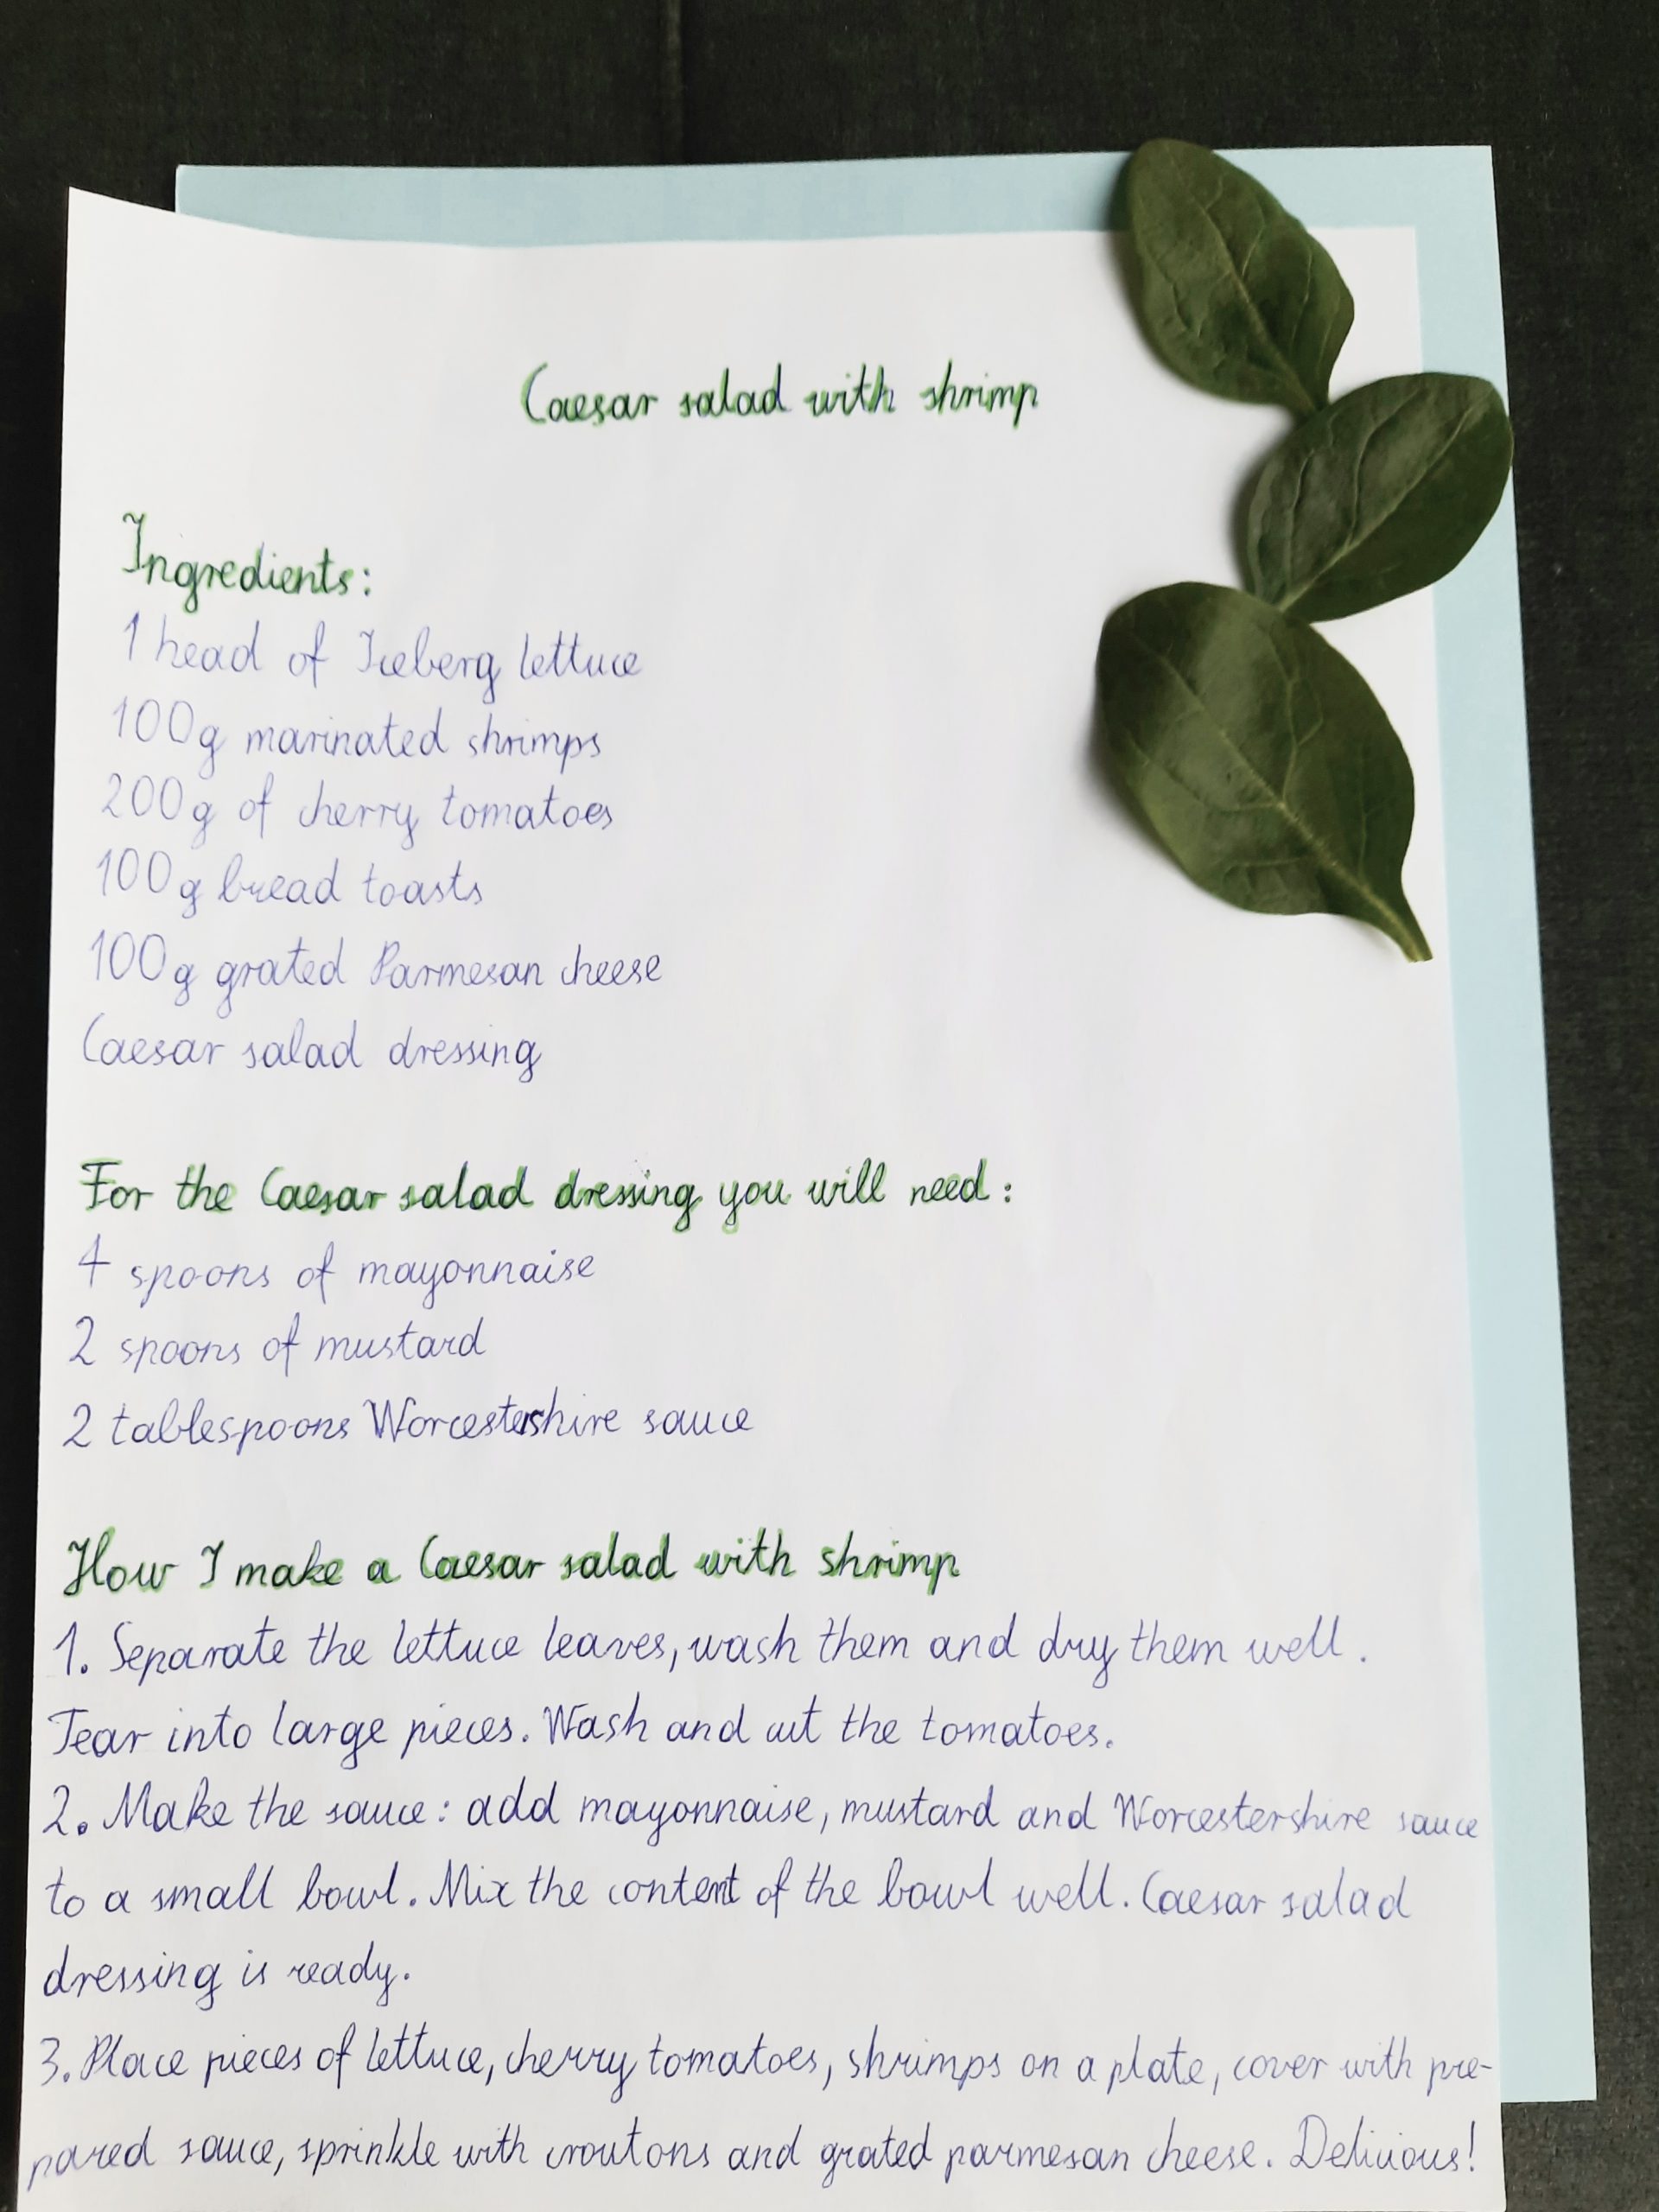 Caesar salad with shrimp
Ingredients:
1 head of Iceberg lettuce
100g marinated shrimps
200g of cherry tomatoes
100g bread toasts
100g grated Parmesan cheese
Caesar salad dressing
For the Caesar salad dressing you will need:
4 spoons of mayonnaise
2 spoons of mustard
2 tablespoons Worcestershire sauce
How I make a Caesar salad with shrimp
1. Separate the lettuce leaves, wash them and dry them well.
Tear into large pieces. Wash and cut the tomatoes.
2. Make the sauce: add mayonnaise, mustard and Worcestershire sauce
to a small bowl. Mix the content of the bowl well. Caesar salad
dressing is ready.
3. Place pieces of lettuce, cherry tomatoes, shrimps on a plate, cover with pre-
pared sauce, sprinkle with croutons and grated parmesan cheese. Delicious!